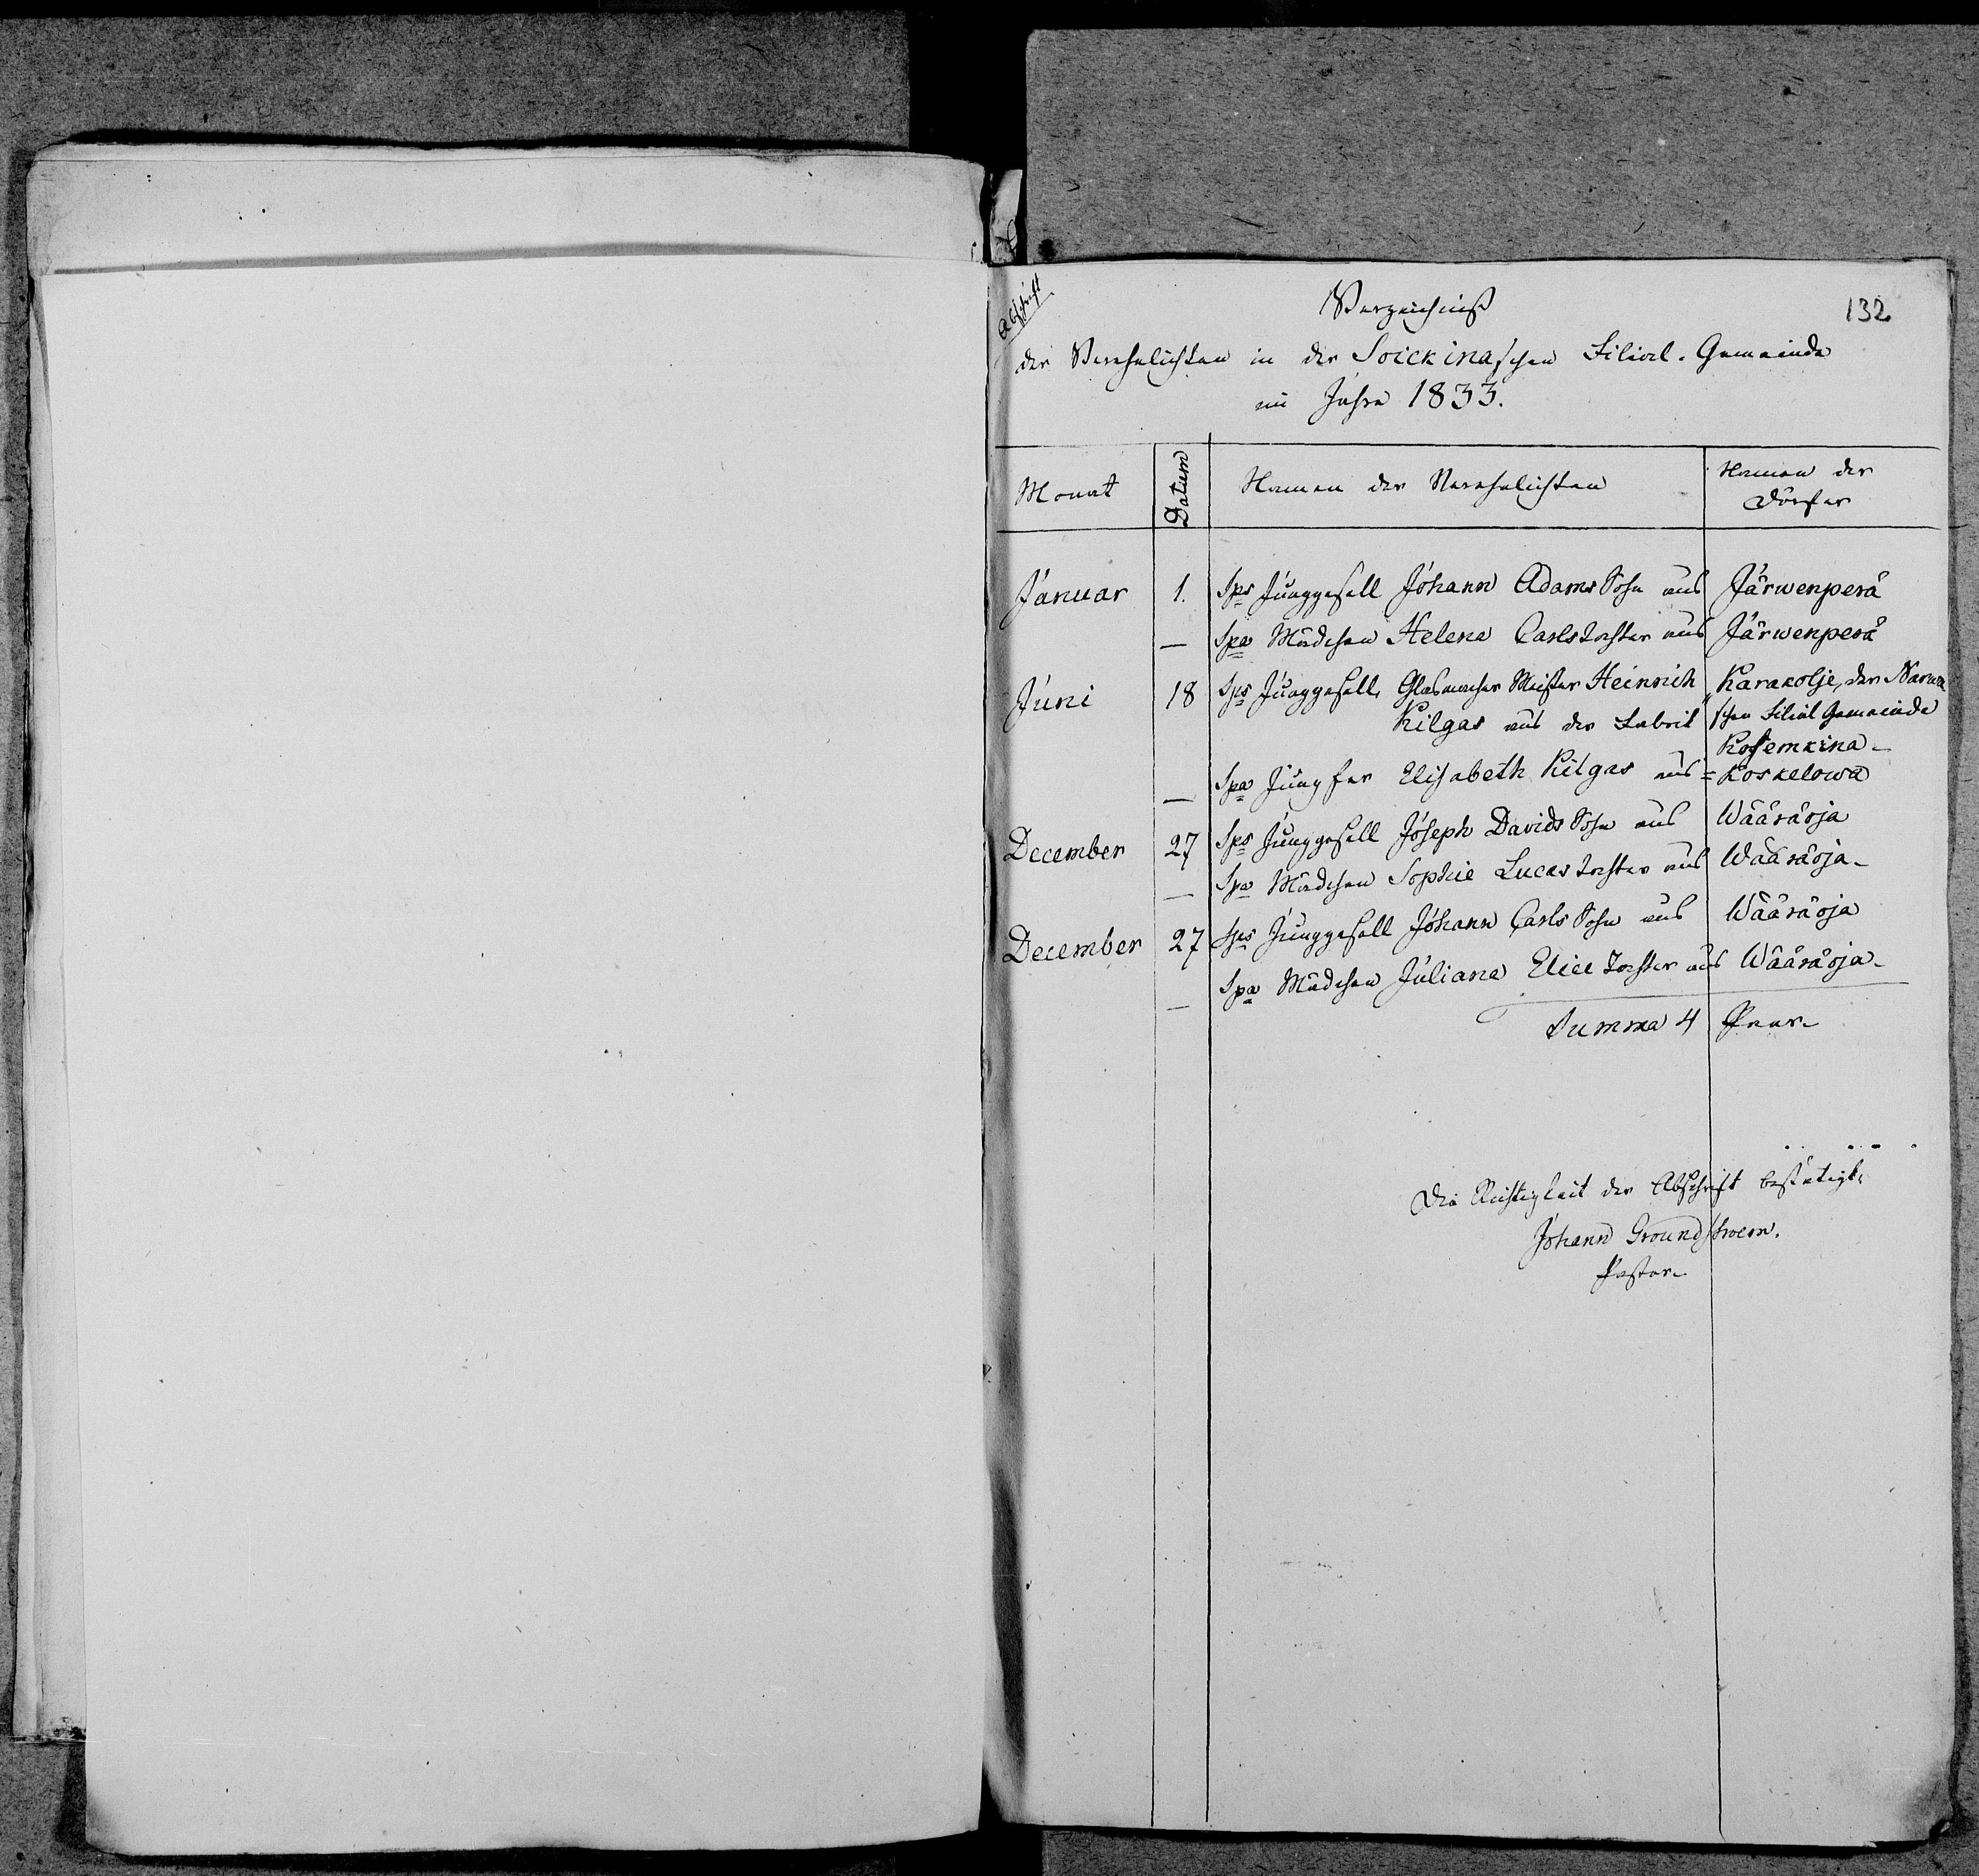 Abschrift
132
Verzeichniß
der Verehelichten in der Soickinaschen Filial-Gemeinde
im Jahre 1833.
Monat Datum Namen der Verehelichten Namen der Dörfer
Januar 1. Sps Junggesell Johann Adams Sohn aus Järwenperä
— Spa Mädchen Helena Carls Tochter aus Järwenperä
Juni 18 Sps Junggesell, Glasmacher Meister Heinrich Karakolje, der Narwa
Kilgas aus der Fabrik schen Filial Gemeinde
Kosemkina
— Spa Jungfer Elisabeth Kilgas aus = Koskelowa
December 27 Sps Junggesell Joseph Davids Sohn aus Wääräoja
— Spa Mädchen Sophie Lucas Tochter aus Wääräoja
December 27 Sps Junggesell Johann Carls Sohn aus Wääräoja
— Spa Mädchen Juliana Elice Tochter aus Wääräoja
Summa 4 Paar
Die Richtigkeit der Abschrift bestätigt,
Johann Groundstroem.
Pastor